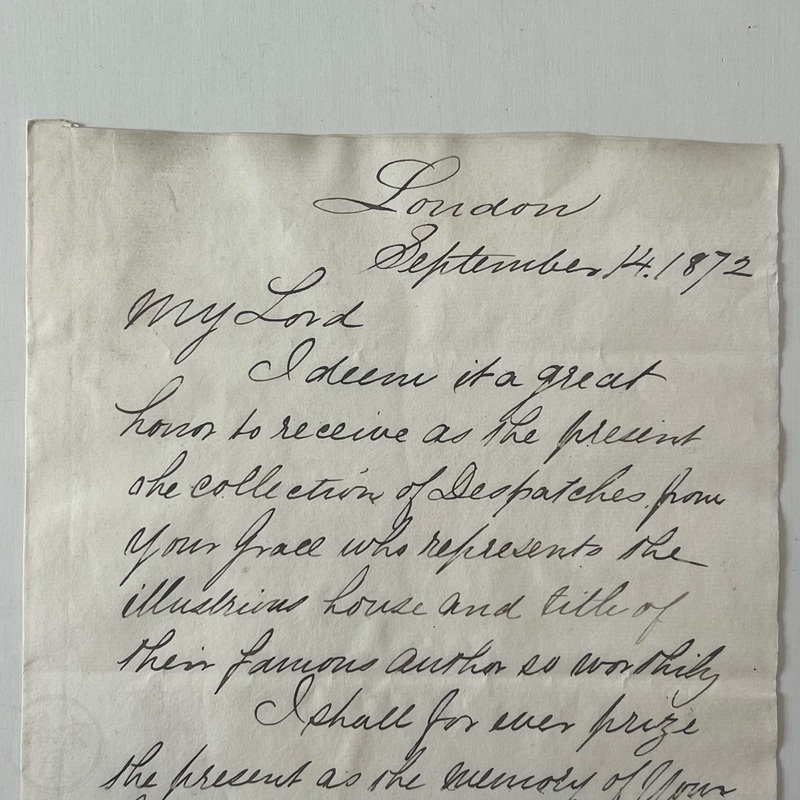 London
September 14. 1872
My Lord
I deem it a great
honor to receive as the present
the collection of Despatches from
Your Grace who represents the
illustrious house and title of
their famous author so worthily
I shall for ever prize
the present as the memory of Your